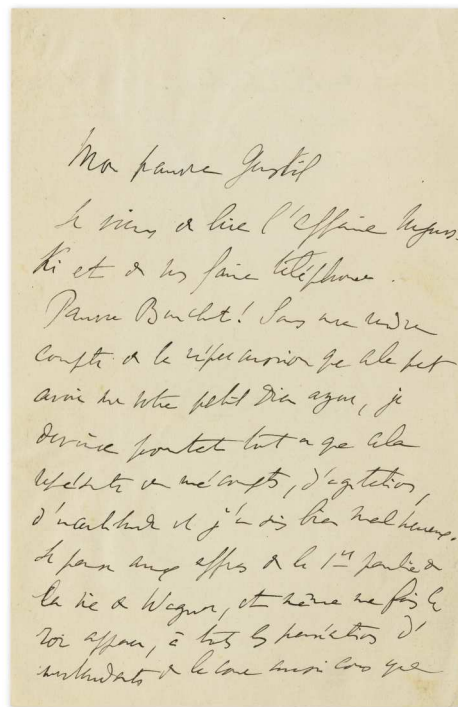 Mon pauvre
Je viens de lire l'affaire
ki et de vs faire téléphoner.
Pauvre Buncht! Sans me rendre
compte de la répercussion que cela pet
avoir sur votre petit Dieu azur, je
devine pourtant tout ce que cela
représente de mécompte, d'agitation,
d'incertitude et j'en suis bien malheureux.
Je pense aux affres de la 1re partie de
la vie de Wagner, et même une fois le
roi apparu, à tts les
de la cour ainsi que